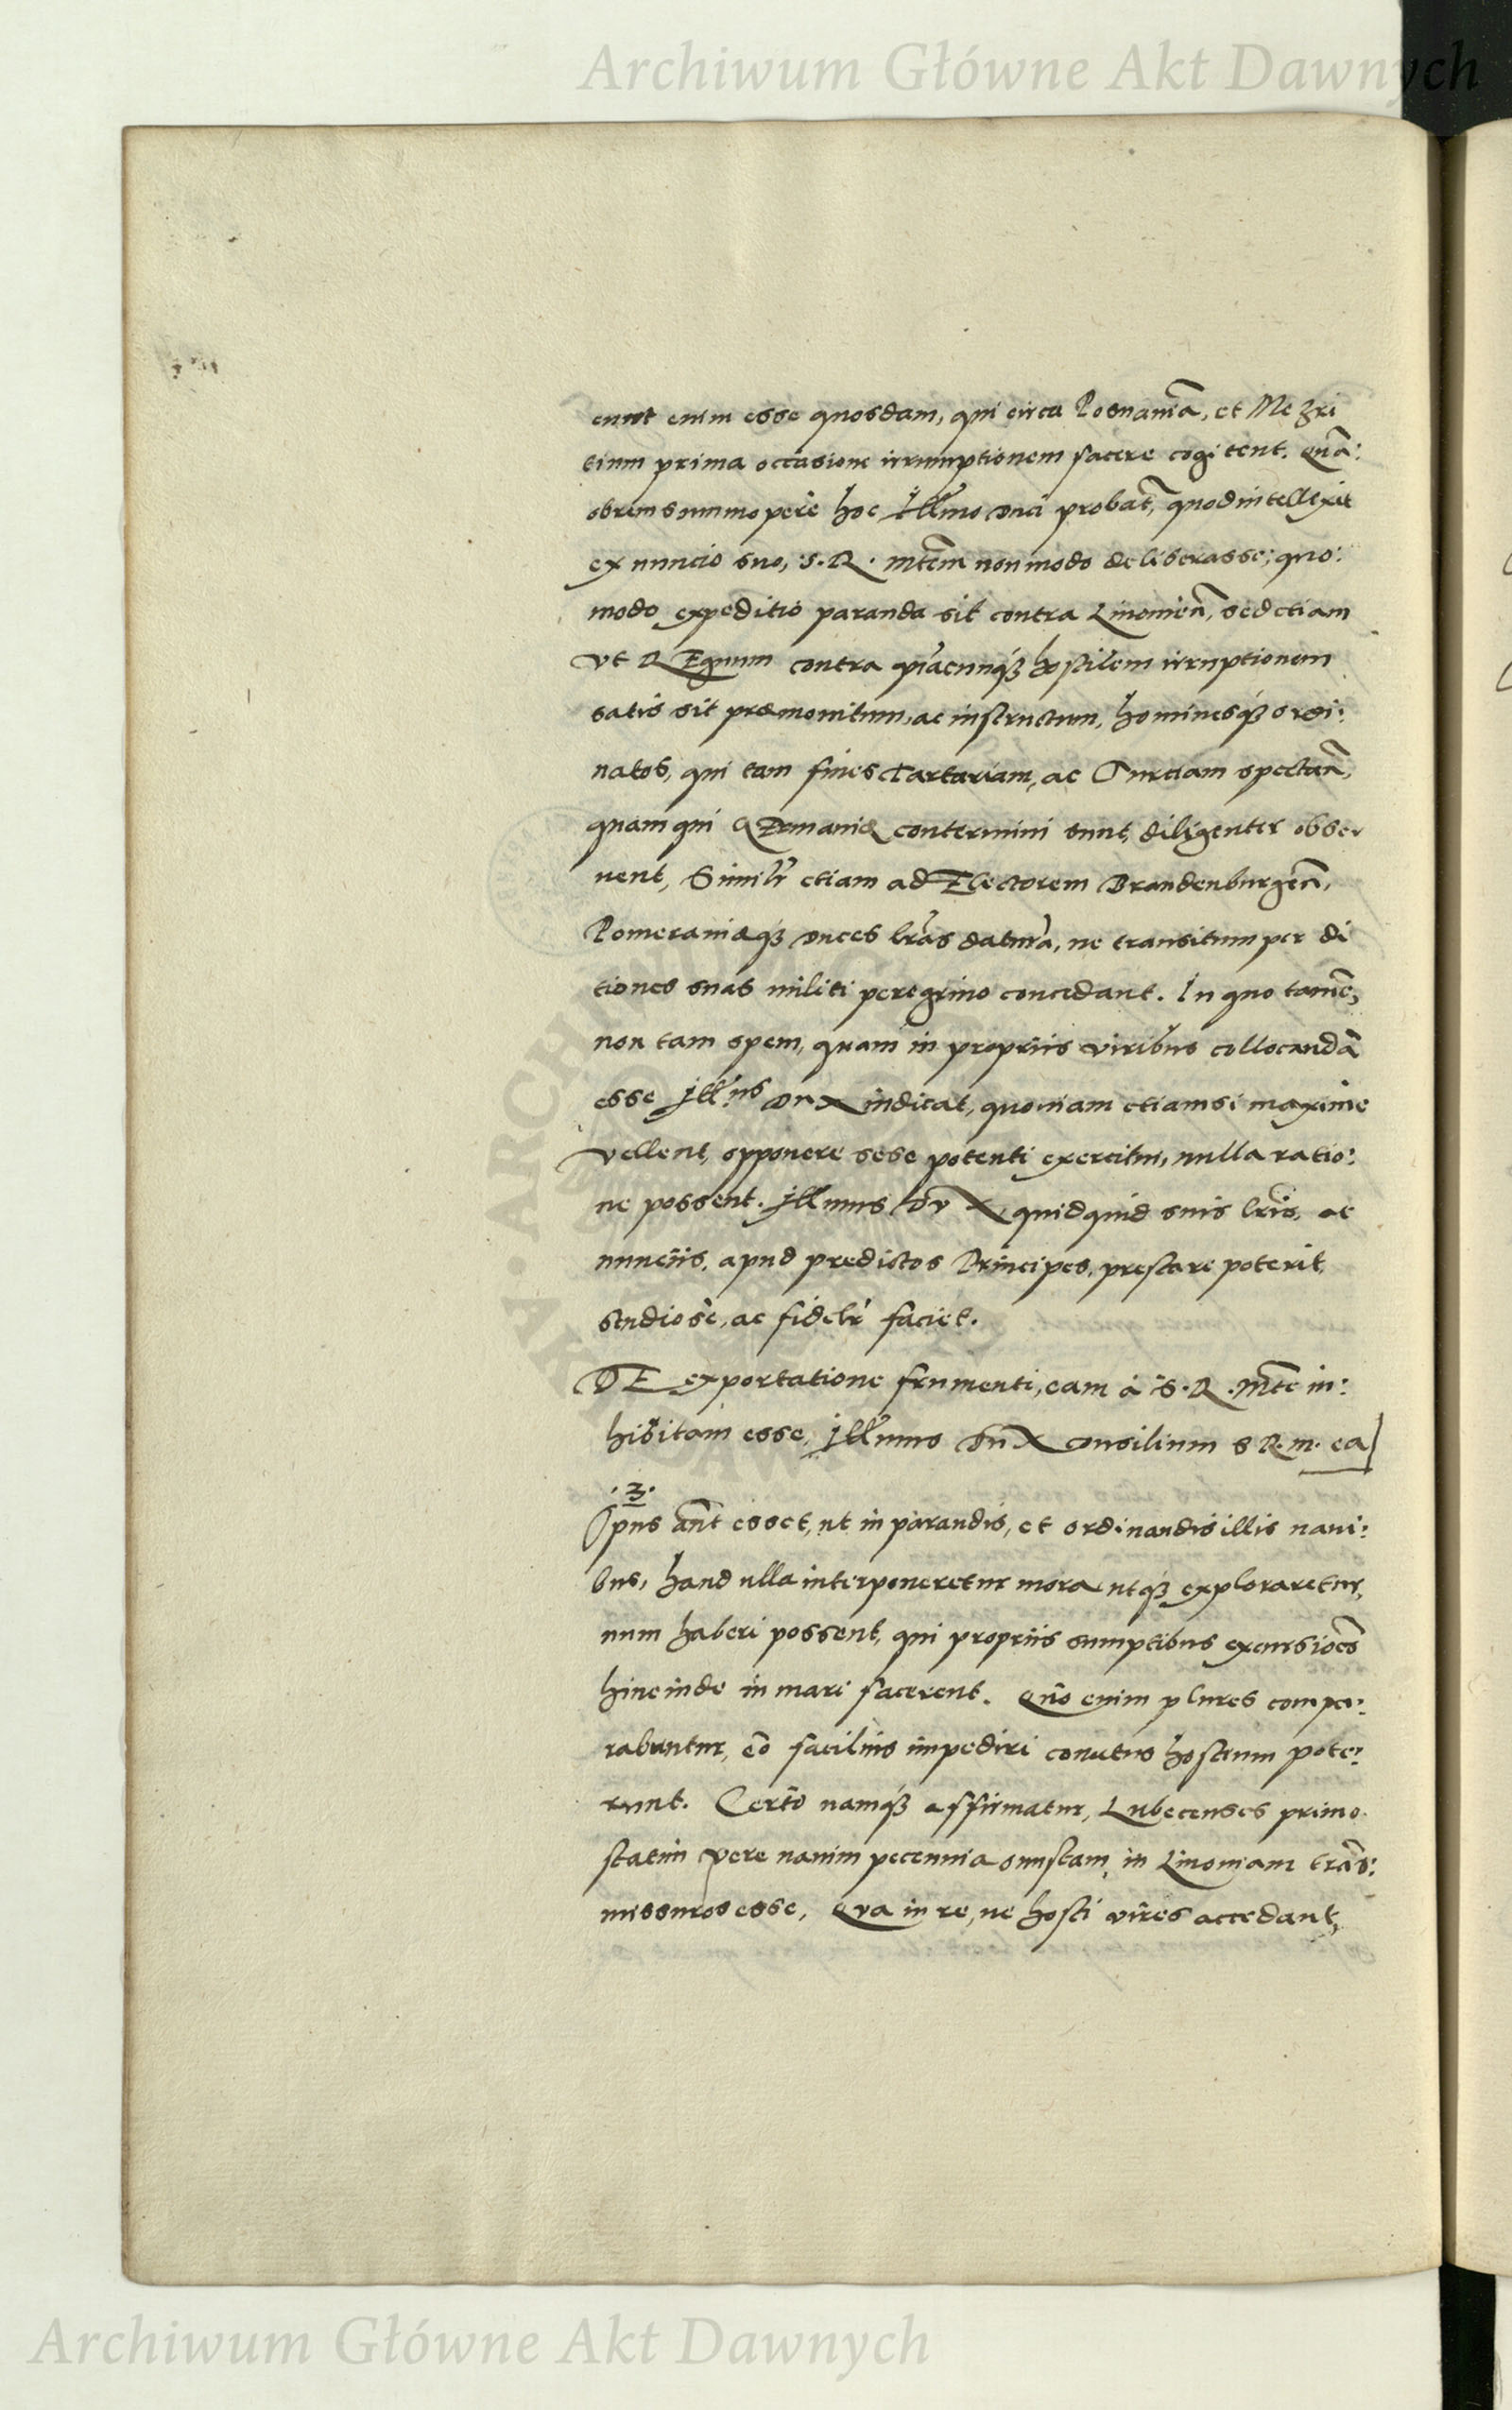 Archiwum Główne Akt Dawnych
eunt enim esse quosdam, qui circa Posnaniã, et Mezri
tium prima occasione irrumptionem facere cogitent. Quã:
obrem summopere hoc Illmo Duci probat, quod intellexit
ex nuncio suo, S. R. Mtem non modo deliberasse; quo:
modo expeditio paranda sit contra Livonien̄, sed etiam
vt REgnum contra quacunq́ʒ hostilem irruptionem
satis sit præmonitum, ac instructum, hominesq́ʒ ordi:
natos, qui tam fines Tartariam, ac Turciam spectan̄,
quam qui GErmaniæ contermini sunt, diligenter obser
uent, Similr̃ etiam ad Electorem Brandenburgen̄,
Pomeraniæq́ʒ Duces lr̃as daturã, ne transitum per di
tiones suas militi peregrino concedant. In quo tamẽ,
non tam spem, quam in propriis viribus collocandã
esse Illmus Dux iudicat, quoniam etiamsi maxime
vellent, opponere sese potenti exercitui, nulla ratio:
ne possent. Illmus Dux, quidquid suis lr̃is, ac
nunciis, apud predictos Principes, prestare poterit,
studiosè, ac fidelr̃ faciet.
DE exportatione frumenti, eam à S. R. Mte in:
hibitam esse, Illmus Dux consilium S R. M. ea
.3.
Opus aũt esset, ut in parandis, et ordinandis illis naui:
bus, haud ulla interponeretur mora utq́ʒ exploraretur,
num haberi possent, qui propriis sumptibus excursiões
hincinde in mare facerent. Quò enim plures compa:
rabuntur, eò facilius impediri conatus hostium pote:
runt. Certò namq́ʒ affirmatur, Lubecenses primo
statim vere nauim pecunnia onustam, in Liuoniam trãs:
missuros esse, Qva in re, ne hosti vires accedant,
ARCHIWUM
Archiwum Główne Akt Dawnych